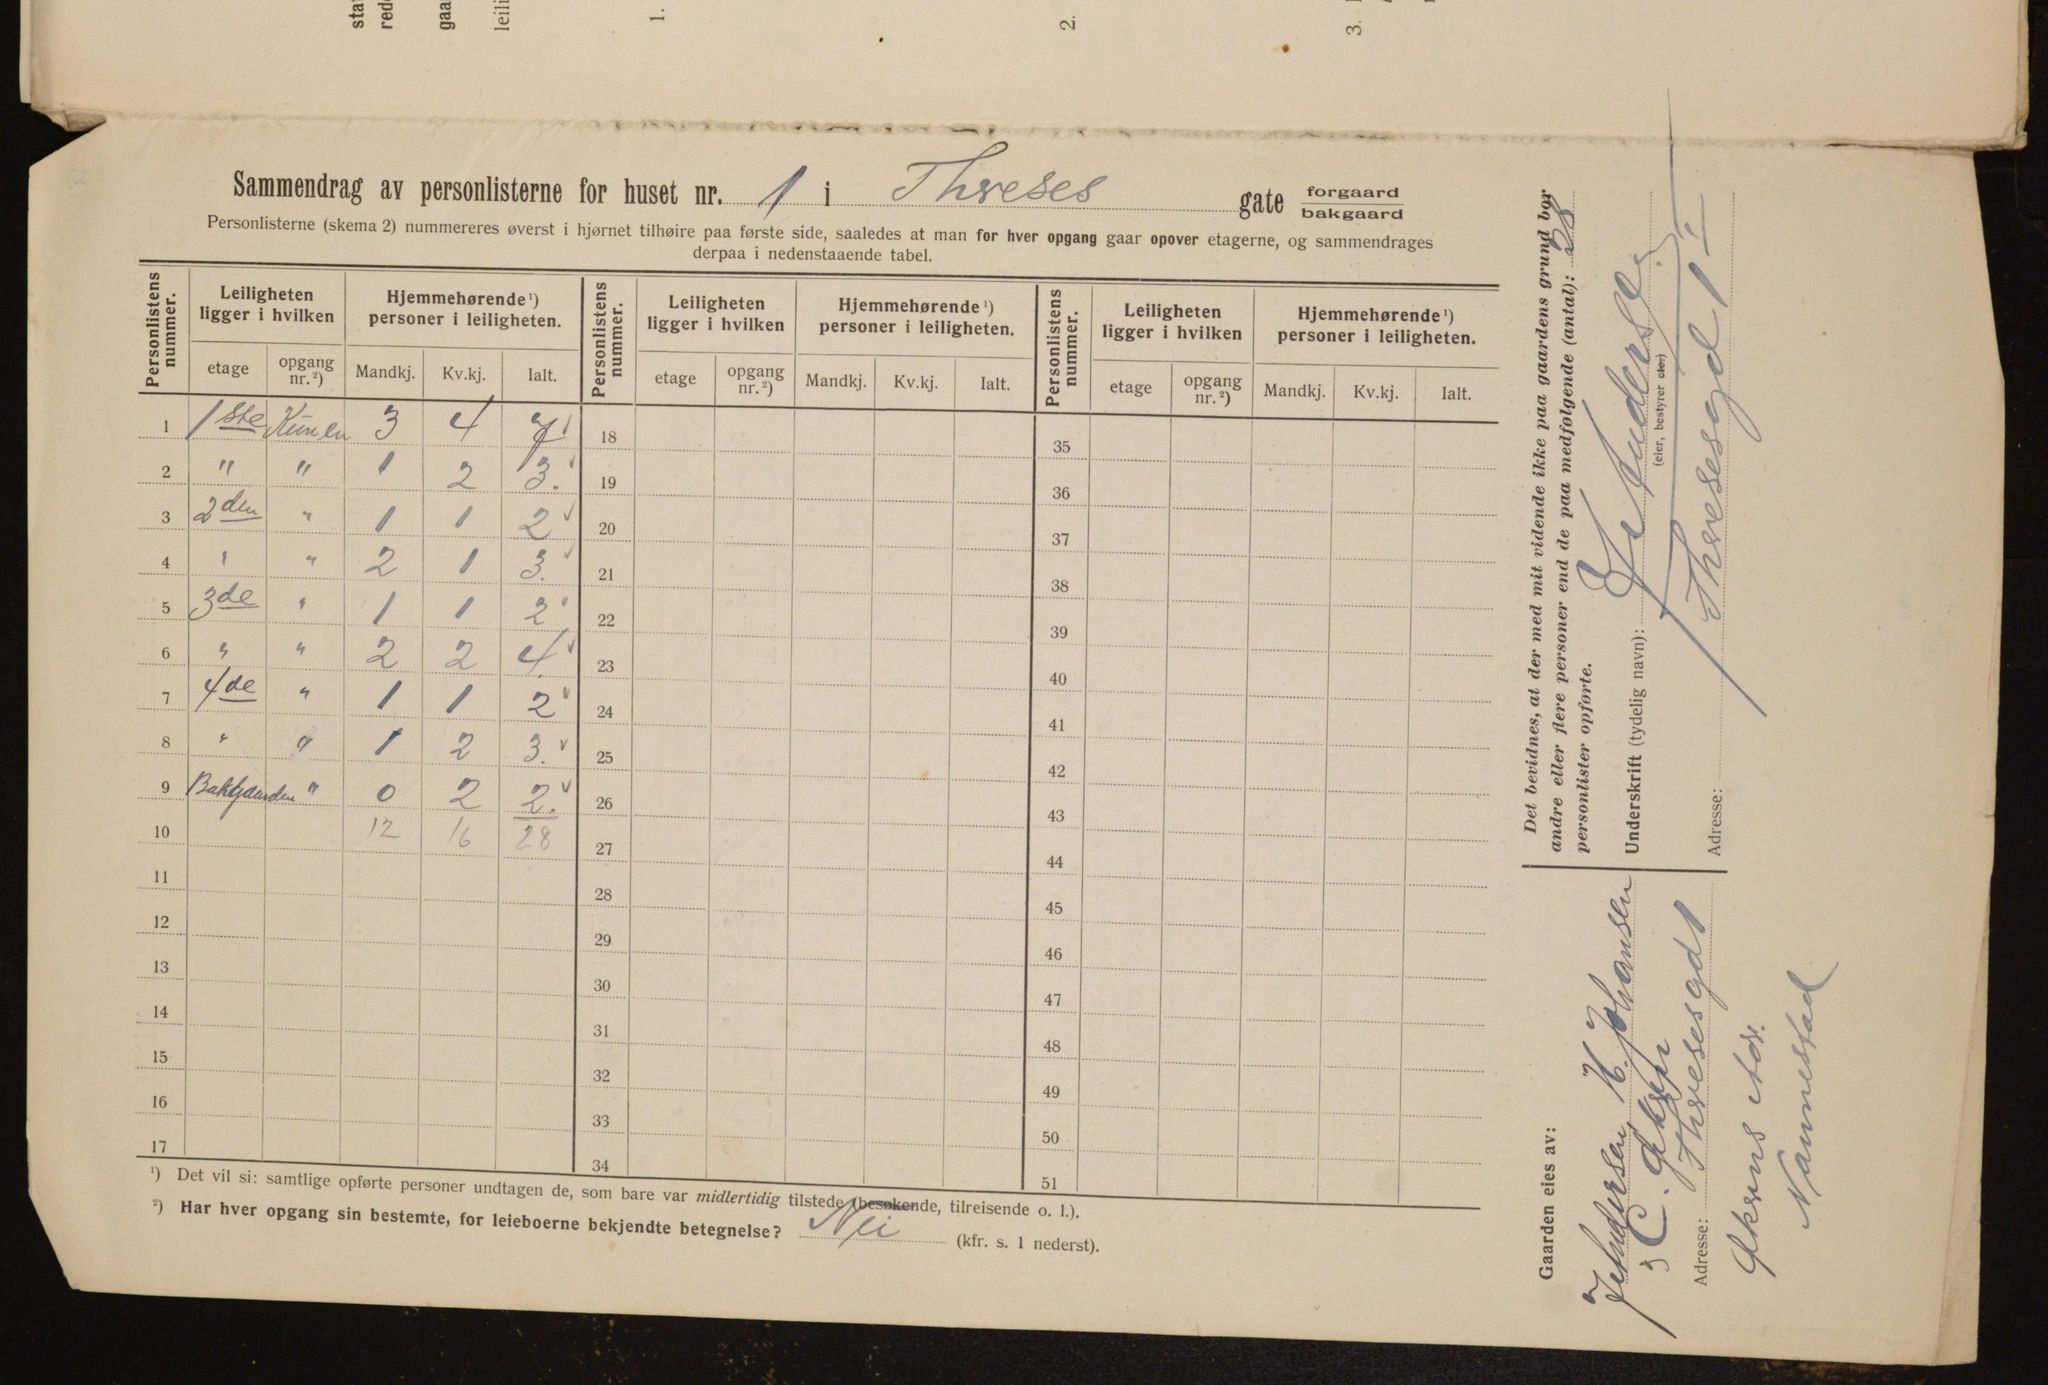 sta
red
gaa
leili
1.
2.
3.
Sammendrag av personlisterne for huset nr. 1 i Threses gate forgaard bakgaard
Personlisterne (skema 2) nummereres øverst i hjørnet tilhøire paa første side, saaledes at man for hver opgang gaar opover etagerne, og sammendrages
derpaa i nedenstaaende tabel.
Personlistens nummer. Leiligheten ligger i hvilken Hjemmehørende ¹) personer i leiligheten. Personlistens nummer. Leiligheten ligger i hvilken Hjemmehørende ¹) personer i leiligheten. Personlistens nummer. Leiligheten ligger i hvilken Hjemmehørende ¹) personer i leiligheten.
etage opgang nr. ²) Mandkj. Kv.kj. Ialt. etage opgang nr. ²) Mandkj. Kv.kj. Ialt. etage opgang nr. ²) Mandkj. Kv.kj. Ialt.
1 1ste 3 4 7 18 35
2 " " 1 2 3. 19 36
3 2den " 1 1 2 20 37
4 " " 2 1 3. 21 38
5 3de " 1 1 2 22 39
6 " " 2 2 4. 23 40
7 4de " 1 1 2 24 41
8 " " 1 2 3. 25 42
9 Bakgaarden " 0 2 2. 26 43
10 12 16 28 27 44
11 28 45
12 29 46
13 30 47
14 31 48
15 32 49
16 33 50
17 34 51
¹) Det vil si: samtlige opførte personer undtagen de, som bare var midlertidig tilstede (besøkende, tilreisende o. l.).
²) Har hver opgang sin bestemte, for leieboerne bekjendte betegnelse? Nei (kfr. s. 1 nederst).
Det bevidnes, at der med mit vidende ikke paa gaardens grund bor
andre eller flere personer end de paa medfølgende (antal): 28
personlister opførte.
Underskrift (tydelig navn):
(eier, bestyrer eler)
Adresse: Thresesgd 1
Gaarden eies av:
Andersen, H. Johansen
Adresse: Thresesgd 1
Nannestad